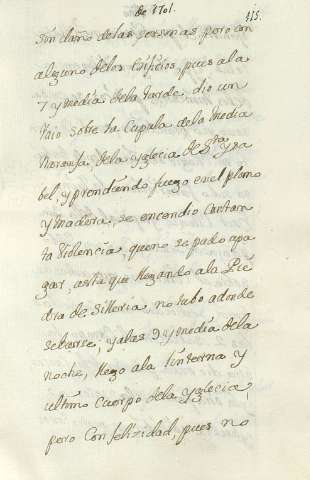 de 1701.
115.
sin daño de las personas pero con
alguno de los Edificios, pues a la
7 y media de la tarde, dio un
raio sobre la Cupula de la media
Naranja de la yglecia de Sta ysa
bel, y prendiendo fuego en el plomo
y Madera, se encendio con tan
ta violencia, que no se pudo apa
gar, asta que llegando a la Pie
dra de Silleria, no tubo adonde
sebarse, y a las 9 y media de la
noche, llego a la linterna y
ultimo cuerpo de la yglecia,
pero con felizidad, pues no